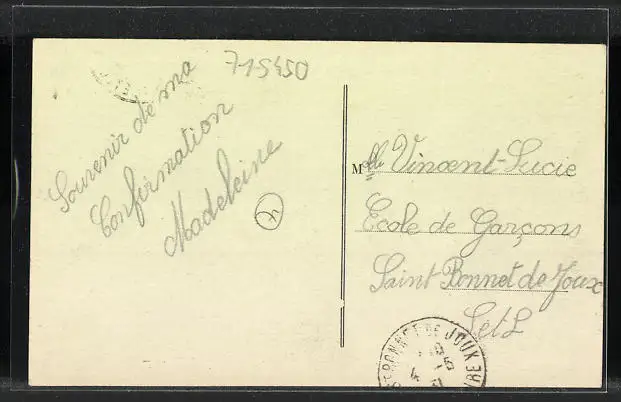 7-15450
Souvenir de ma
Confirmation
Madeleine
Mlle Vincent Lucie
Ecole de Garçons
Saint Bonnet de Joux
S et L
BONNET DE JOUX